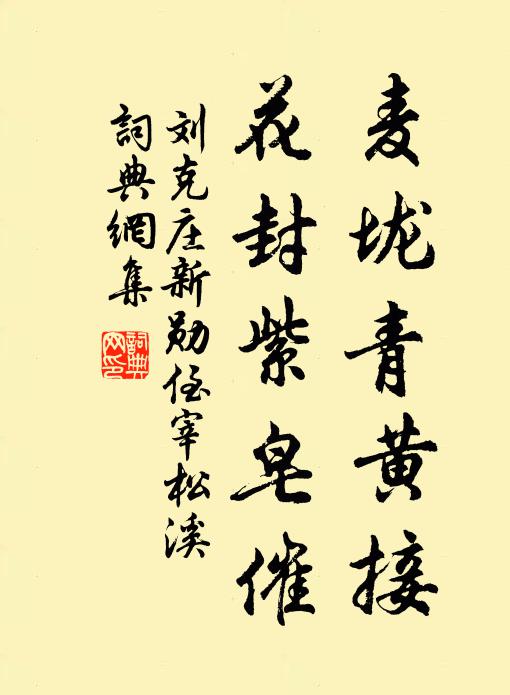 麦垅青黄接
花封紫皂催
刘克庄新勋侄宰松溪
詞典網集
詞典网印